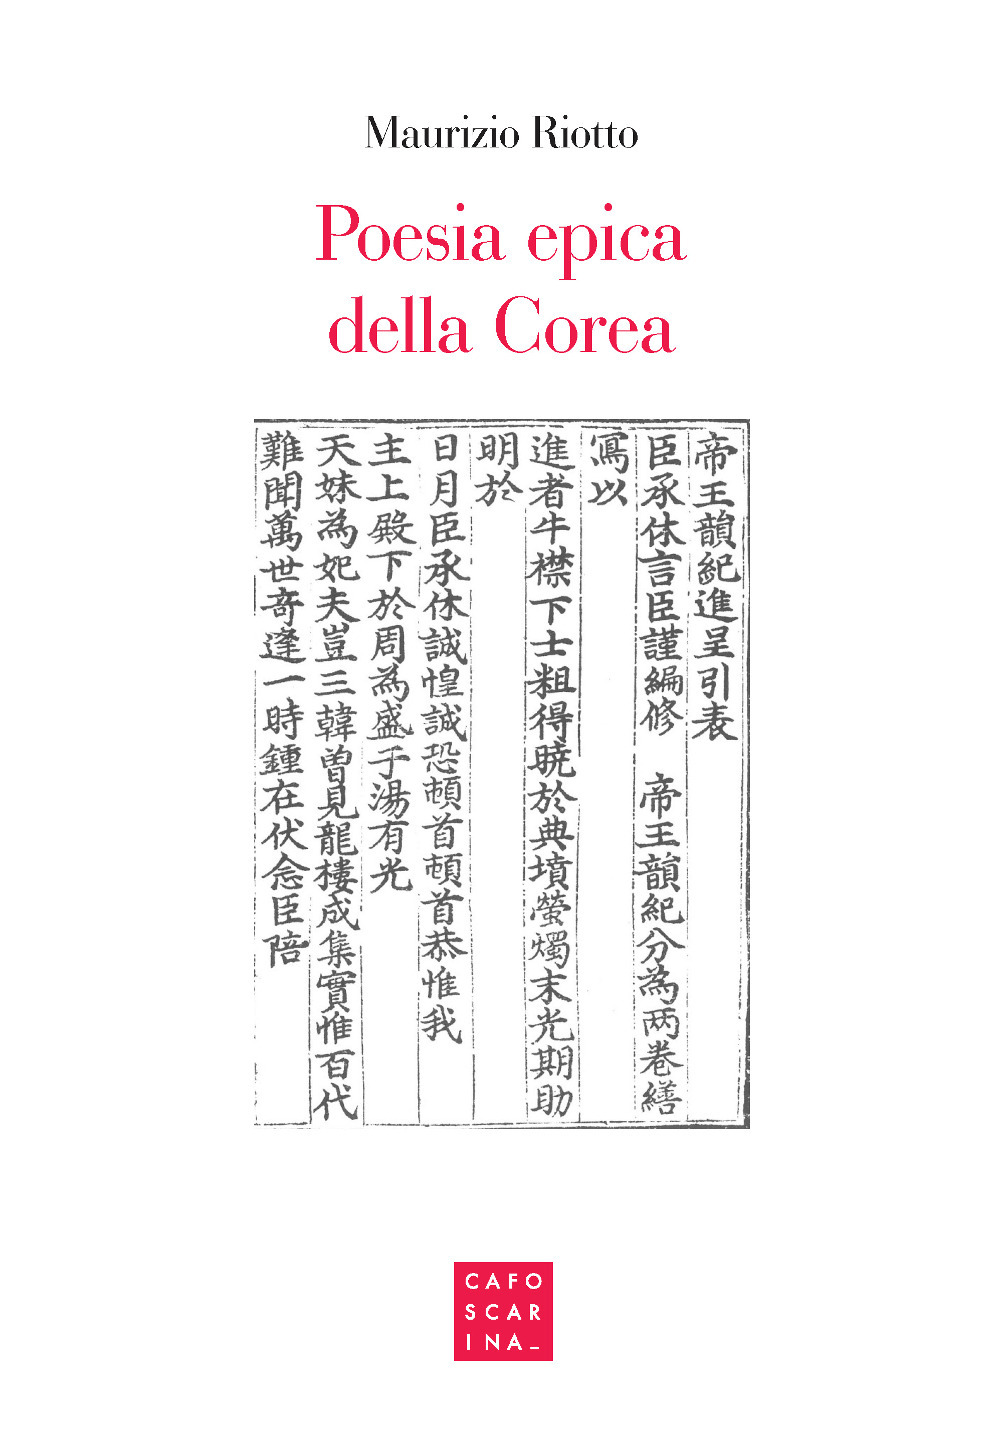 Maurizio Riotto
Poesia epica
della Corea
帝王韻紀進呈引表
臣承休言臣謹編修　帝王韻紀分為両卷繕
寫以
進者牛襟下士粗得曉於典墳螢燭末光期助
明於
日月臣承休誠惶誠恐頓首頓首恭惟我
主上殿下於周為盛于湯有光
天妹為妃夫豈三韓曾見龍樓成集實惟百代
難聞萬世竒逢一時鍾在伏念臣陪
CAFO
SCAR
INA_